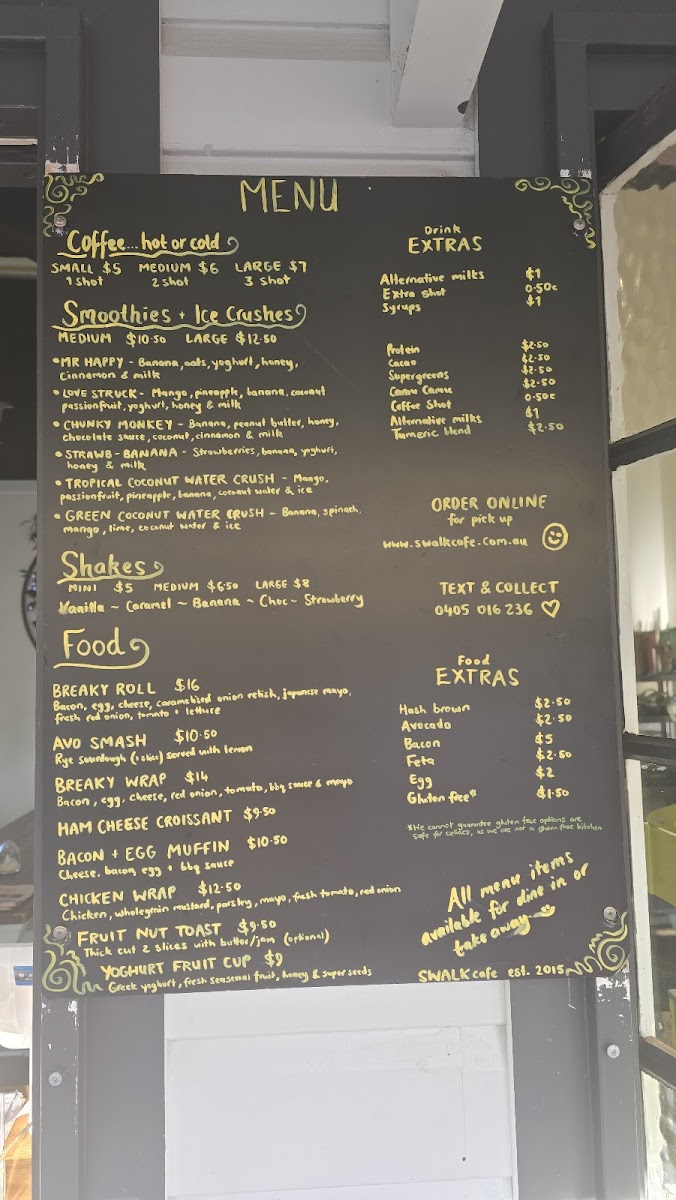 MENU
Coffee... hot or cold
SMALL $5 MEDIUM $6 LARGE $7
1 shot 2 shot 3 shot
Smoothies + Ice Crushes
MEDIUM $10.50 LARGE $12.50
•MR HAPPY - Banana, oats, yoghurt, honey,
cinnamon & milk
•LOVE STRUCK - Mango, pineapple, banana, coconut
passionfruit, yoghurt, honey & milk
•CHUNKY MONKEY - Banana, peanut butter, honey,
chocolate sauce, coconut, cinnamon & milk
•STRAWB-BANANA - Strawberries, banana, yoghurt,
honey & milk
•TROPICAL COCONUT WATER CRUSH - Mango,
passionfruit, pineapple, banana, coconut water & ice
•GREEN COCONUT WATER CRUSH - Banana, spinach,
mango, lime, coconut water & ice
Shakes
MINI $5 MEDIUM $6.50 LARGE $8
Vanilla ~ Caramel ~ Banana ~ Choc ~ Strawberry
Food
BREAKY ROLL $16
Bacon, egg, cheese, caramelised onion relish, japanese mayo,
fresh red onion, tomato + lettuce
AVO SMASH $10.50
Rye sourdough (1 slice) served with lemon
BREAKY WRAP $14
Bacon, egg, cheese, red onion, tomato, bbq sauce & mayo
HAM CHEESE CROISSANT $9.50
BACON + EGG MUFFIN $10.50
Cheese, bacon, egg + bbq sauce
CHICKEN WRAP $12.50
Chicken, wholegrain mustard, parsley, mayo, fresh tomato, red onion
FRUIT NUT TOAST $9.50
Thick cut 2 slices with butter/jam (optional)
YOGHURT FRUIT CUP $9
Greek yoghurt, fresh seasonal fruit, honey & super seeds
Drink
EXTRAS
Alternative milks $1
Extra shot 0.50c
Syrups $1
Protein $2.50
Cacao $2.50
Supergreens $2.50
Camu Camu $2.50
Coffee Shot 0.50c
Alternative milks $1
Tumeric blend $2.50
ORDER ONLINE
for pick up
www.swalkcafe.com.au
TEXT & COLLECT
0405 016 236
Food
EXTRAS
Hash brown $2.50
Avocado $2.50
Bacon $5
Feta $2.50
Egg $2
Gluten free* $1.50
*We cannot guarantee gluten free options are
safe for celiacs, as we are not a gluten free kitchen
All menu items
available for dine in or
take away
SWALK cafe est. 2015